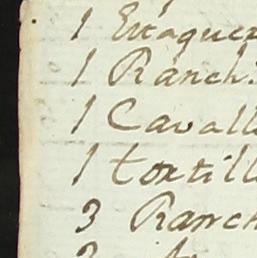 1 Estaquer
1 Ranch.
1 Cavall
1 tortill
3 Ranch